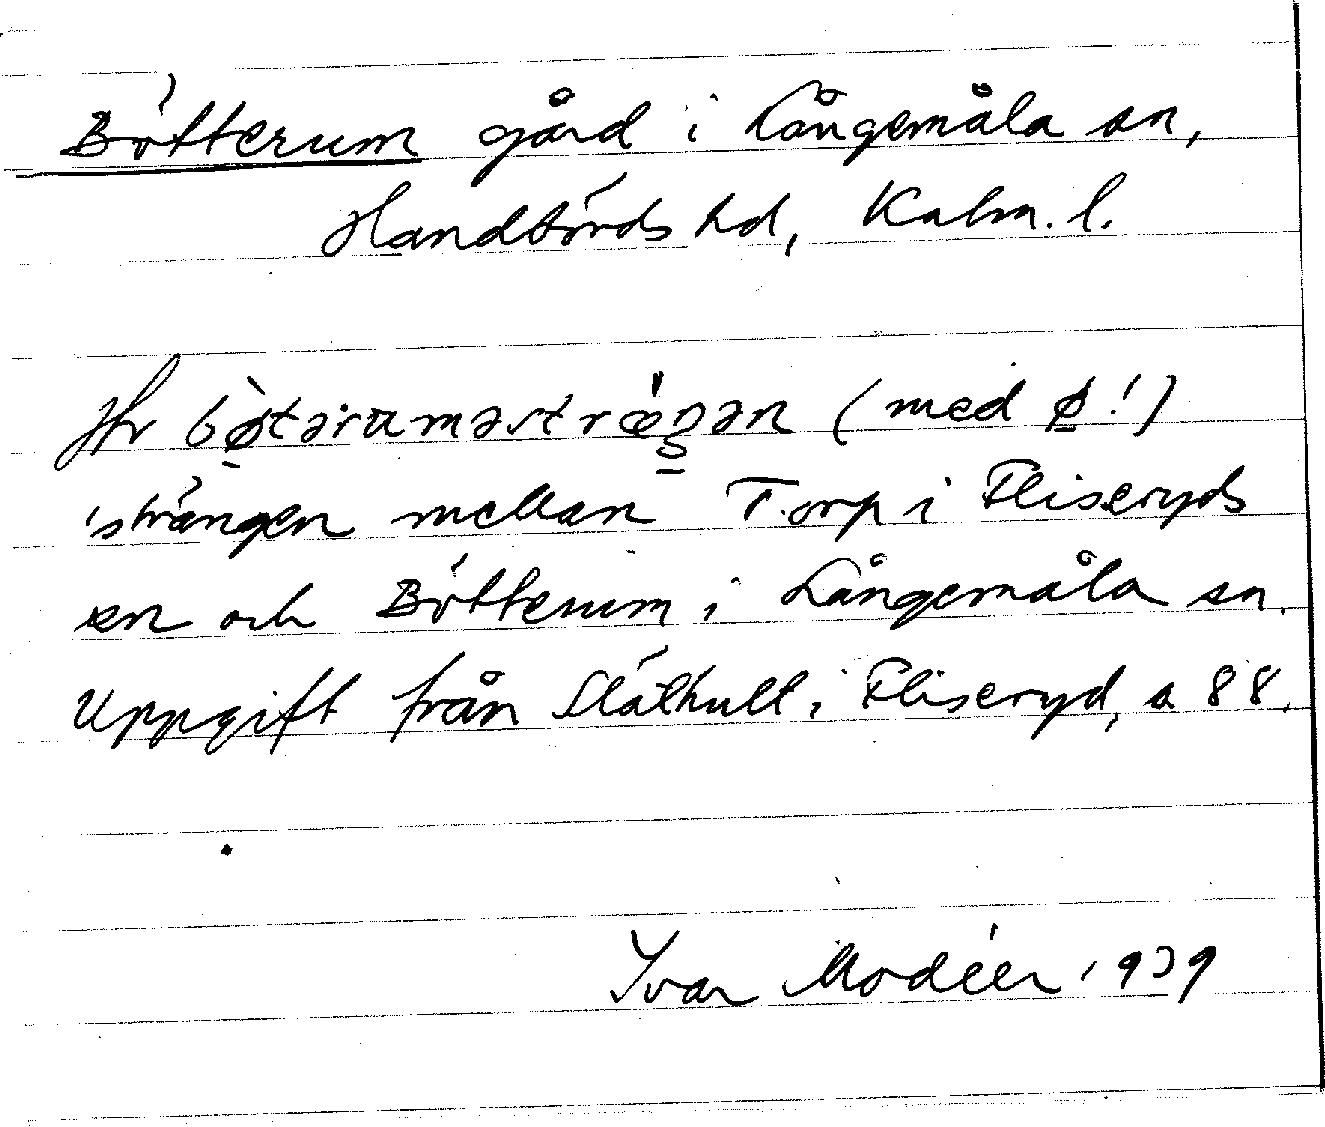 Bötterum gård i Långemåla sn,
Handbörds hd, Kalm. l.
Jfr bø̀tərumərstræŋən (med ø!)
'strängen mellan Torp i Fliseryds
sn och Bötterum i Långemåla sn.
Uppgift från Släthult i Fliseryd, a 88.
Ivar Modéer 1939